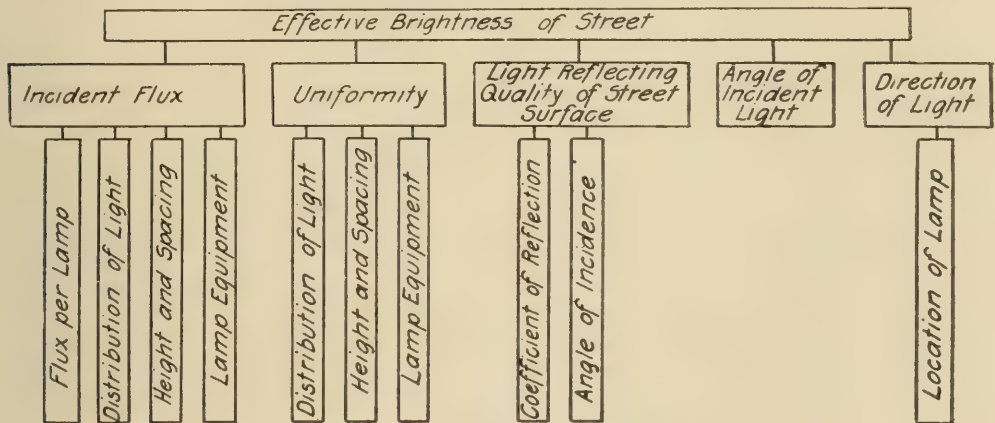 Effective Brightness of Street
Incident Flux
Uniformity
Light Reflecting
Quality of Street
Surface
Angle of
Incident
Light
Direction
of Light
Flux per Lamp
Distribution of Light
Height and Spacing
Lamp Equipment
Distribution of Light
Height and Spacing
Lamp Equipment
Coefficient of Reflection
Angle of Incidence
Location of Lamp